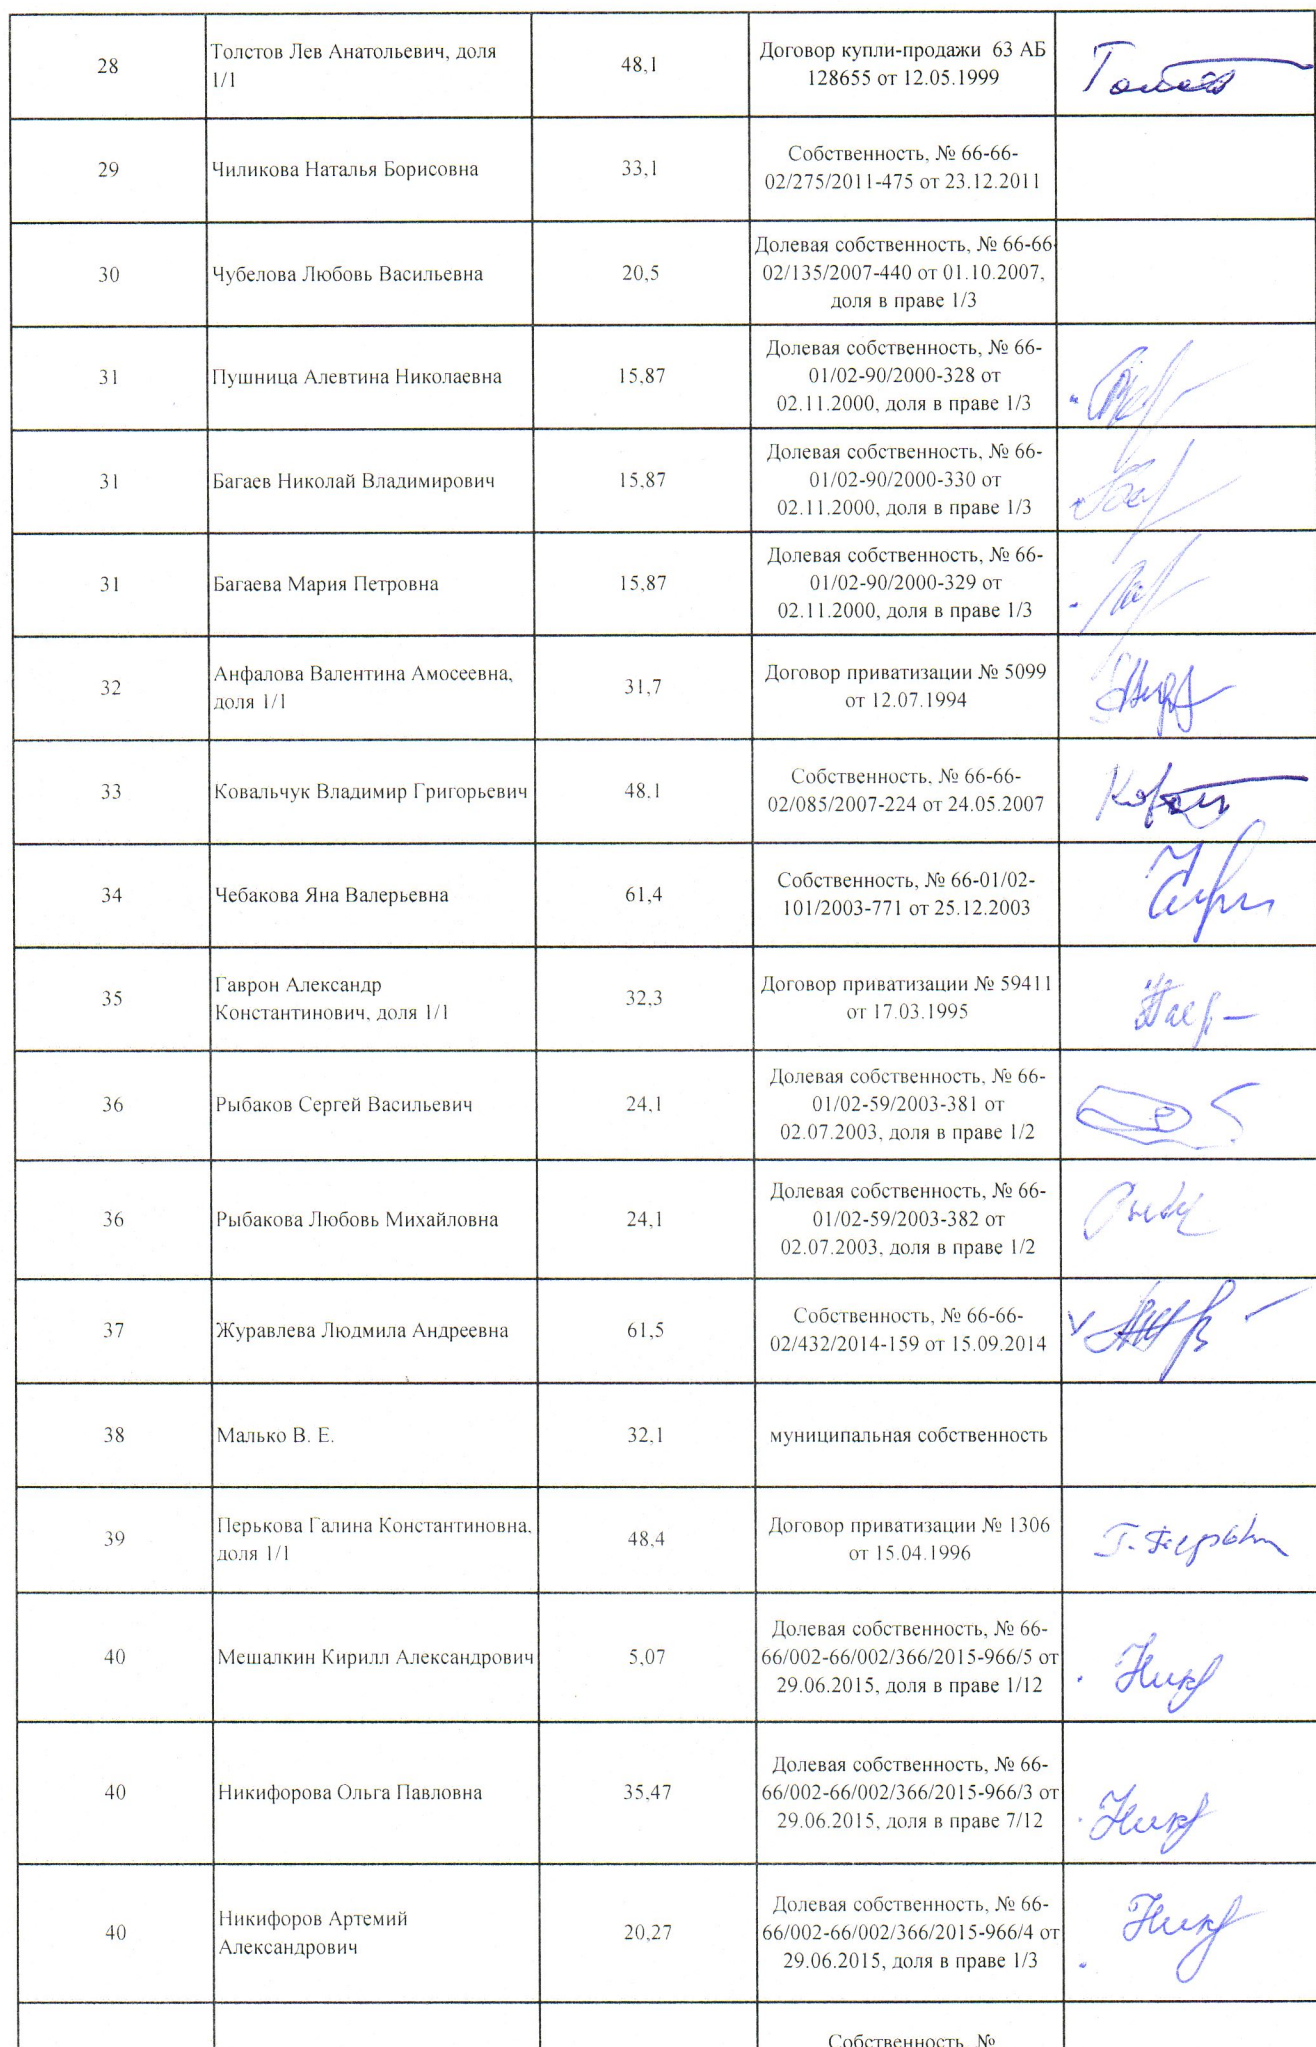 28
Толстов Лев Анатольевич, доля
1/1
48,1
Договор купли-продажи 63 АБ
128655 от 12.05.1999
29
Чиликова Наталья Борисовна
33,1
Собственность, № 66-66-
02/275/2011-475 от 23.12.2011
30
Чубелова Любовь Васильевна
20,5
Долевая собственность, № 66-66-
02/135/2007-440 от 01.10.2007,
доля в праве 1/3
31
Пушница Алевтина Николаевна
15,87
Долевая собственность, № 66-
01/02-90/2000-328 от
02.11.2000, доля в праве 1/3
31
Багаев Николай Владимирович
15,87
Долевая собственность, № 66-
01/02-90/2000-330 от
02.11.2000, доля в праве 1/3
31
Багаева Мария Петровна
15,87
Долевая собственность, № 66-
01/02-90/2000-329 от
02.11.2000, доля в праве 1/3
32
Анфалова Валентина Амосеевна,
доля 1/1
31,7
Договор приватизации № 5099
от 12.07.1994
33
Ковальчук Владимир Григорьевич
48,1
Собственность, № 66-66-
02/085/2007-224 от 24.05.2007
34
Чебакова Яна Валерьевна
61,4
Собственность, № 66-01/02-
101/2003-771 от 25.12.2003
35
Гаврон Александр
Константинович, доля 1/1
32,3
Договор приватизации № 59411
от 17.03.1995
36
Рыбаков Сергей Васильевич
24,1
Долевая собственность, № 66-
01/02-59/2003-381 от
02.07.2003, доля в праве 1/2
36
Рыбакова Любовь Михайловна
24,1
Долевая собственность, № 66-
01/02-59/2003-382 от
02.07.2003, доля в праве 1/2
37
Журавлева Людмила Андреевна
61,5
Собственность, № 66-66-
02/432/2014-159 от 15.09.2014
38
Малько В. Е.
32,1
муниципальная собственность
39
Перькова Галина Константиновна,
доля 1/1
48,4
Договор приватизации № 1306
от 15.04.1996
40
Мешалкин Кирилл Александрович
5,07
Долевая собственность, № 66-
66/002-66/002/366/2015-966/5 от
29.06.2015, доля в праве 1/12
40
Никифорова Ольга Павловна
35,47
Долевая собственность, № 66-
66/002-66/002/366/2015-966/3 от
29.06.2015, доля в праве 7/12
40
Никифоров Артемий
Александрович
20,27
Долевая собственность, № 66-
66/002-66/002/366/2015-966/4 от
29.06.2015, доля в праве 1/3
Собственность, №